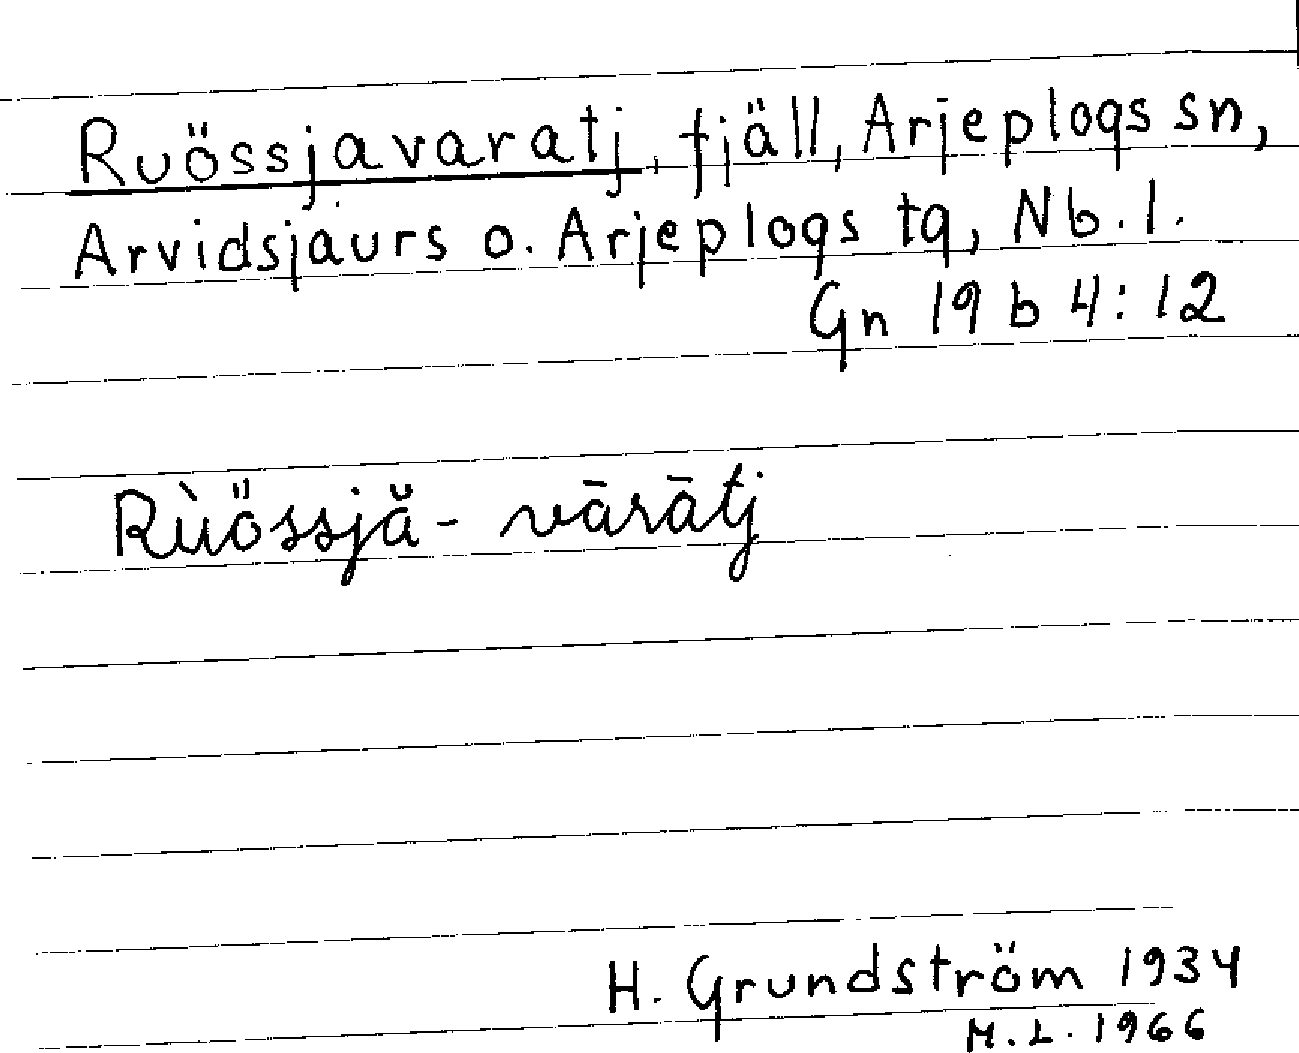 Ruössjavaratj, fjäll, Arjeplogs sn,
Arvidsjaurs o. Arjeplogs tg, Nb. l.
Gn 19 b 4:12
Rùössjă- vārātj
H. Grundström 1934
M. L. 1966